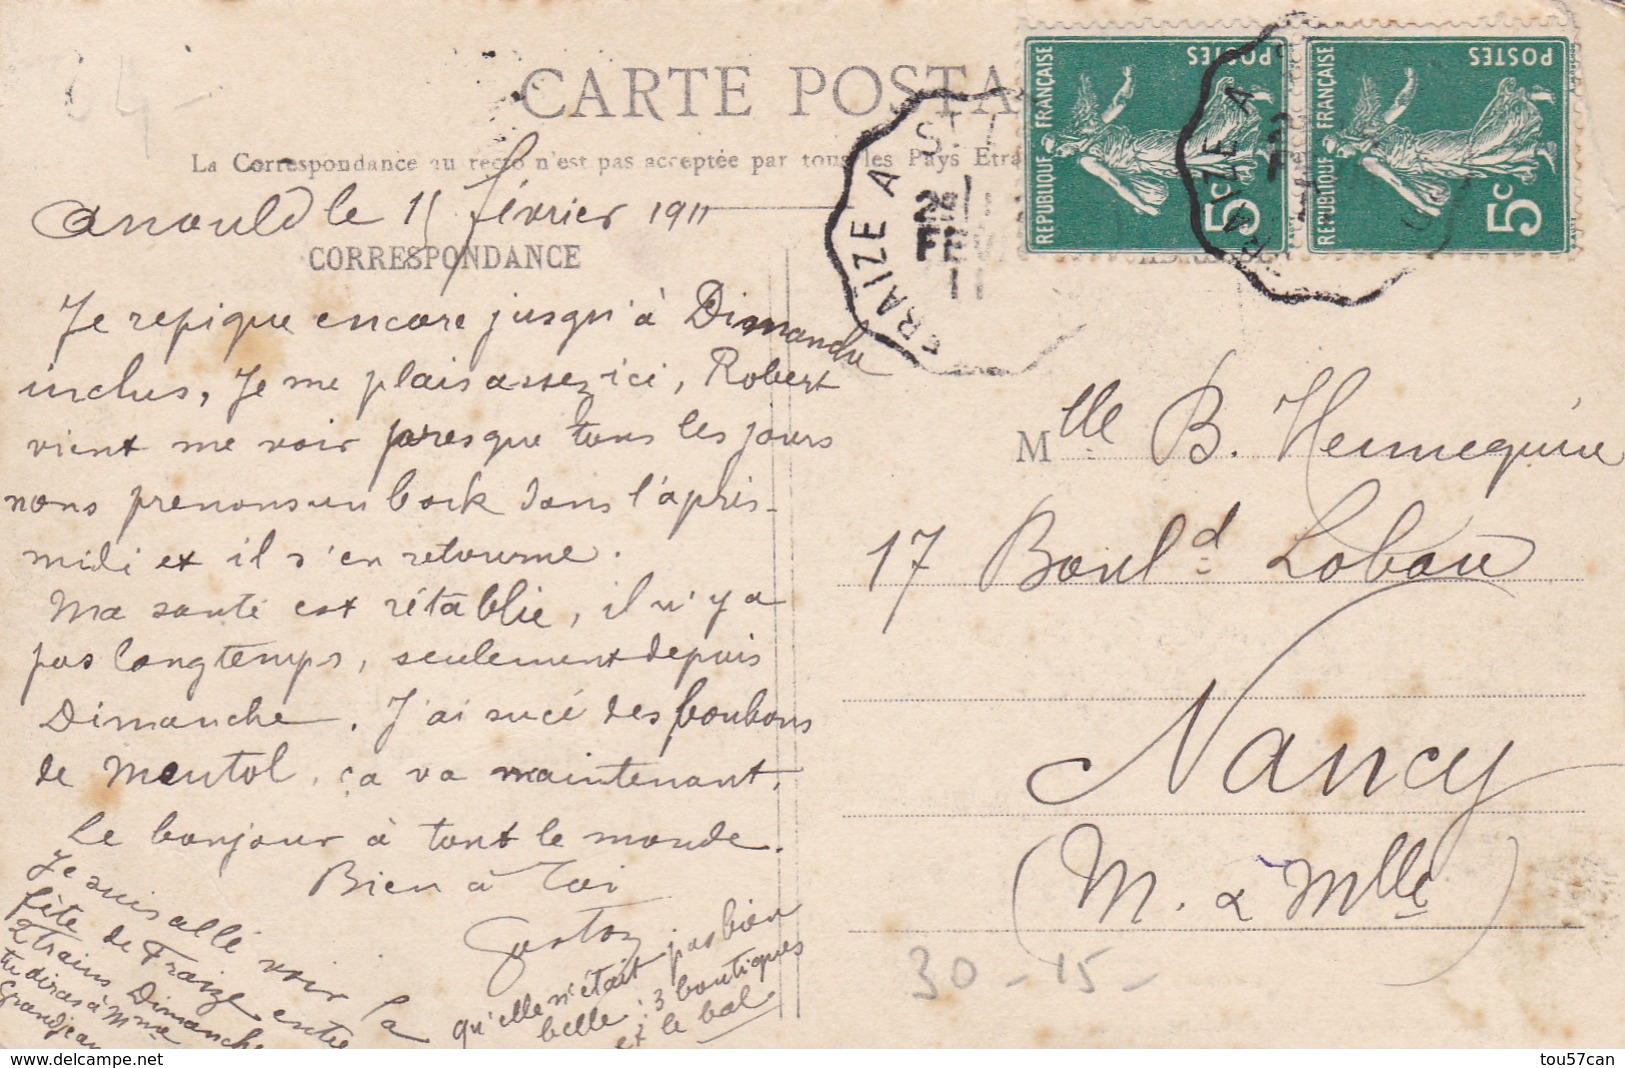 CARTE POSTA
La Correspondance au recto n'est pas acceptée par tous les Pays Etra
Anould le 15 février 1911
CORRESPONDANCE
Je repique encore jusqu'à Dimanche
inclus, Je me plais assez ici, Robert
vient me voir presque tous les jours
nous prenons un bock dans l'après-
midi et il s'en retourne.
Ma santé est rétablie, il n'y a
pas longtemps, seulement depuis
Dimanche. J'ai sucé des bonbons
de Mentol, ça va maintenant.
Le bonjour à tout le monde.
Bien à Toi
Gaston
Je suis allé voir la
fête de Fraize entre
2 trains Dimanche
tu diras à Mme
Grandjean
qu'elle n'était pas bien
belle : 3 boutiques
et le bal
REPUBLIQUE FRANÇAISE
POSTES
5c
REPUBLIQUE FRANÇAISE
POSTES
5c
FRAIZE A S
FEV
11
FRAIZE A
Mlle B. Hennequin
17 Boul.d Lobau
Nancy
(M. & Mlle)
30-15-
tou57can
delcampe.net